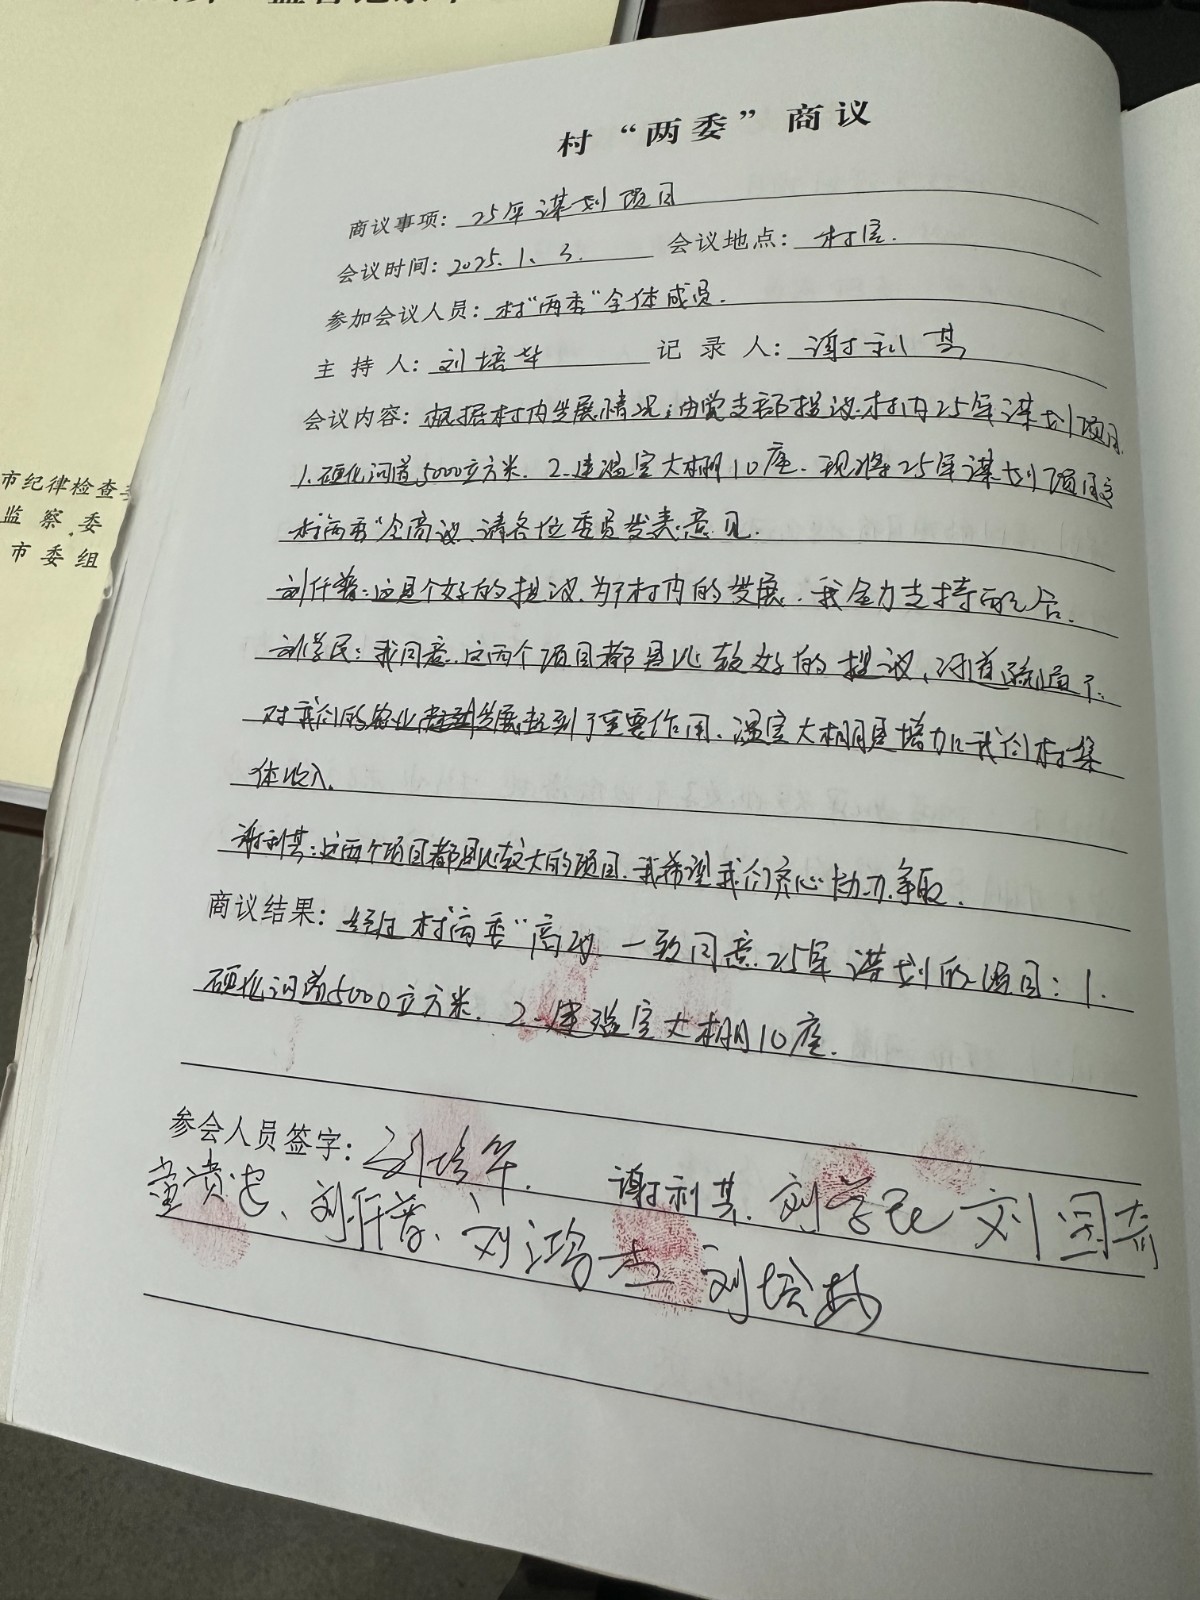 市纪律检查
监察委
市委组
村“两委”商议
商议事项：25年谋划项目
会议时间：2025.1.3. 会议地点：村室.
参加会议人员：村“两委”全体成员.
主持人：刘培华 记录人：谢利其
会议内容：根据村内发展情况；由党支部提议.村内25年谋划项目
1.硬化河道5000立方米.2.建温室大棚10座.现将25年谋划项目交
村“两委”会商议、请各位委员发表意见.
刘仟普：这是个好的提议.为了村内的发展.我全力支持配合.
刘学民：我同意.这两个项目都是比较好的提议、河道疏通了.
对我们的农业发展起到了重要作用.温室大棚是增加我们村集
体收入.
谢利其：这两个项目都是比较大的项目.我希望我们齐心协力.争取.
商议结果：经过村“两委”商议 一致同意.25年谋划的项目：1.
硬化河道5000立方米. 2.建温室大棚10座.
参会人员签字：刘培华. 谢利其.刘学民 刘国
董贵忠、刘仟普、刘鸿杰 刘培